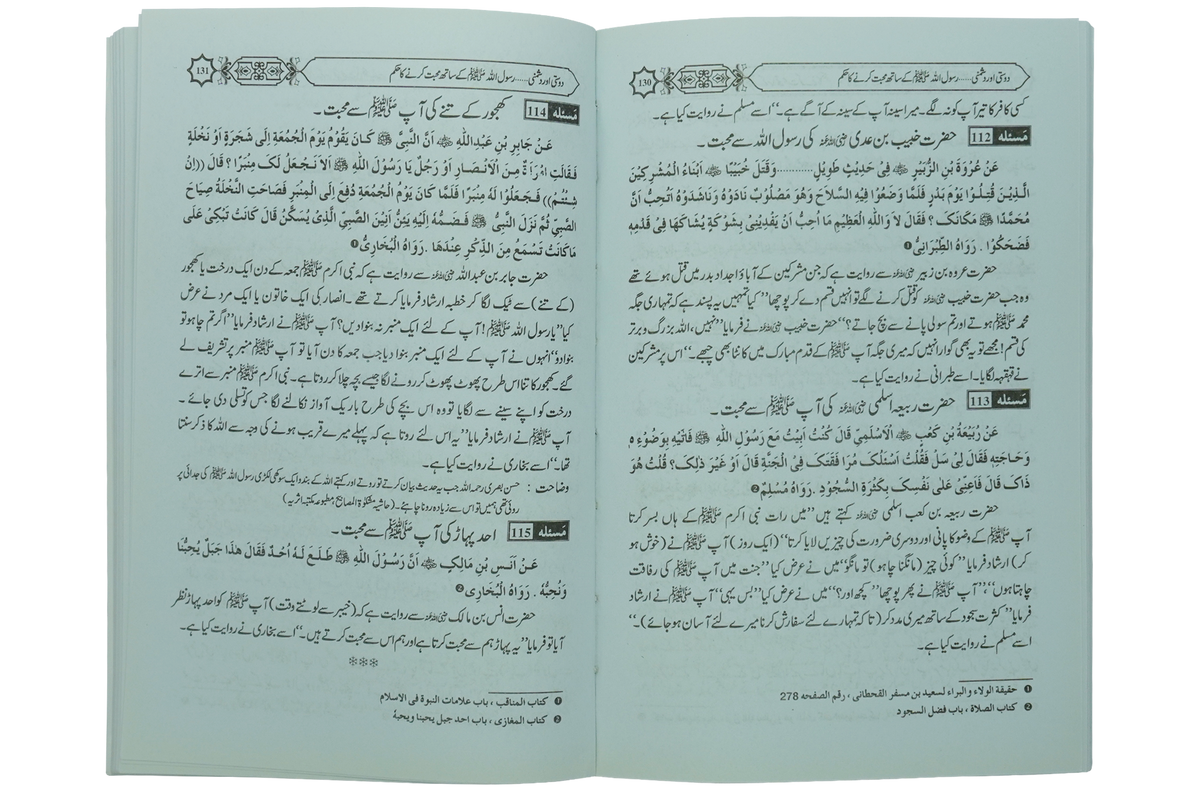 130 دوستی اور دشمنی ...... رسول اللہ ﷺ کے ساتھ محبت کرنے کا حکم
کسی کافر کا تیر آپ کو نہ لگے۔ میرا سینہ آپ کے سینہ کے آگے ہے۔‘‘ اسے مسلم نے روایت کیا ہے۔
مَسئلہ 112 حضرت خبیب بن عدی رضی اللہ عنہ کی رسول اللہ سے محبت۔
عَنْ عُرْوَةَ بْنِ الزُّبَيْرِ ؓ فِیْ حَدِیْثٍ طَوِیْلٍ............وَقَتَلَ خُبَيْبًا ؓ اَبْنَاءُ الْمُشْرِکِیْنَ
الَّذِیْنَ قُتِلُوْا یَوْمَ بَدْرٍ فَلَمَّا وَضَعُوْا فِیْهِ السِّلَاحَ وَهُوَ مَصْلُوْبٌ نَادَوْهُ وَنَاشَدُوْهُ اَتُحِبُّ اَنَّ
مُحَمَّدًا ﷺ مَکَانَکَ ؟ فَقَالَ لَا وَاللهِ الْعَظِیْمِ مَا اُحِبُّ اَنْ یَفْدِیَنِیْ بِشَوْکَةٍ یُشَاکُهَا فِیْ قَدَمِهٖ
فَضَحِکُوْا . رَوَاهُ الطِّبْرَانِیُّ ❶
حضرت عروہ بن زبیر رضی اللہ عنہ سے روایت ہے کہ جن مشرکین کے آباؤ اجداد بدر میں قتل ہوئے تھے
وہ جب حضرت خبیب رضی اللہ عنہ کو قتل کرنے لگے تو انہیں قسم دے کر پوچھا ’’کیا تمہیں یہ پسند ہے کہ تمہاری جگہ
محمد ﷺ ہوتے اور تم سولی پانے سے بچ جاتے؟‘‘ حضرت خبیب رضی اللہ عنہ نے فرمایا ’’نہیں، اللہ بزرگ و برتر
کی قسم! مجھے تو یہ بھی گوارا نہیں کہ میری جگہ آپ ﷺ کے قدم مبارک میں کانٹا بھی چبھے۔‘‘ اس پر مشرکین
نے قہقہہ لگایا۔ اسے طبرانی نے روایت کیا ہے۔
مَسئلہ 113 حضرت ربیعہ اسلمی رضی اللہ عنہ کی آپ ﷺ سے محبت۔
عَنْ رَبِیْعَةَ بْنِ کَعْبٍ ؓ الْاَسْلَمِیِّ قَالَ کُنْتُ اَبِیْتُ مَعَ رَسُوْلِ اللهِ ﷺ فَاَتَیْهِ بِوَضُوْءِهٖ
وَحَاجَتِهٖ فَقَالَ لِیْ سَلْ فَقُلْتُ اَسْئَلُکَ مُرَافَقَتَکَ فِی الْجَنَّةِ قَالَ اَوْ غَیْرَ ذٰلِکَ؟ قُلْتُ هُوَ
ذَاکَ قَالَ فَاَعِنِّیْ عَلٰی نَفْسِکَ بِکَثْرَةِ السُّجُوْدِ . رَوَاهُ مُسْلِمٌ ❷
حضرت ربیعہ بن کعب اسلمی رضی اللہ عنہ کہتے ہیں ’’میں رات نبی اکرم ﷺ کے ہاں بسر کرتا
آپ ﷺ کے وضو کا پانی اور دوسری ضرورت کی چیزیں لایا کرتا‘‘ (ایک روز) آپ ﷺ نے (خوش ہو
کر) ارشاد فرمایا ’’کوئی چیز (مانگنا چاہو) تو مانگو‘‘ میں نے عرض کیا ’’جنت میں آپ ﷺ کی رفاقت
چاہتا ہوں‘‘، آپ ﷺ نے پھر پوچھا ’’کچھ اور؟‘‘ میں نے عرض کیا ’’بس یہی‘‘ آپ ﷺ نے ارشاد
فرمایا ’’کثرت سجود کے ساتھ میری مدد کر (تا کہ تمہارے لئے سفارش کرنا میرے لئے آسان ہو جائے)۔‘‘
اسے مسلم نے روایت کیا ہے۔
❶ حقیقة الولاء والبراء لسعید بن مسفر القحطانی ، رقم الصفحه 278
❷ کتاب الصلاة ، باب فضل السجود
131 دوستی اور دشمنی ...... رسول اللہ ﷺ کے ساتھ محبت کرنے کا حکم
مَسئلہ 114 کھجور کے تنے کی آپ ﷺ سے محبت۔
عَنْ جَابِرِ بْنِ عَبْدِاللهِ ؓ اَنَّ النَّبِیَّ ﷺ کَانَ یَقُوْمُ یَوْمَ الْجُمُعَةِ اِلٰی شَجَرَةٍ اَوْ نَخْلَةٍ
فَقَالَتِ امْرَأَةٌ مِنَ الْاَنْصَارِ اَوْ رَجُلٌ یَا رَسُوْلَ اللهِ ﷺ اَلَا نَجْعَلُ لَکَ مِنْبَرًا ؟ قَالَ ((اِنْ
شِئْتُمْ)) فَجَعَلُوْا لَهٗ مِنْبَرًا فَلَمَّا کَانَ یَوْمُ الْجُمُعَةِ دُفِعَ اِلَی الْمِنْبَرِ فَصَاحَتِ النَّخْلَةُ صِیَاحَ
الصَّبِیِّ ثُمَّ نَزَلَ النَّبِیُّ ﷺ فَضَمَّهُ اِلَیْهِ یَئِنُّ اَنِیْنَ الصَّبِیِّ الَّذِیْ یُسَکَّنُ قَالَ کَانَتْ تَبْکِیْ عَلٰی
مَا کَانَتْ تَسْمَعُ مِنَ الذِّکْرِ عِنْدَهَا . رَوَاهُ الْبُخَارِیُّ ❶
حضرت جابر بن عبداللہ رضی اللہ عنہ سے روایت ہے کہ نبی اکرم ﷺ جمعہ کے دن ایک درخت یا کھجور
(کے تنے) سے ٹیک لگا کر خطبہ ارشاد فرمایا کرتے تھے۔ انصار کی ایک خاتون یا ایک مرد نے عرض
کیا ’’یا رسول اللہ ﷺ! آپ کے لئے ایک منبر نہ بنوا دیں؟ آپ ﷺ نے ارشاد فرمایا ’’اگر تم چاہو تو
بنوا دو‘‘ انہوں نے آپ کے لئے ایک منبر بنوا دیا جب جمعہ کا دن آیا تو آپ ﷺ منبر پر تشریف لے
گئے۔ کھجور کا تنا اس طرح پھوٹ پھوٹ کر رونے لگا جیسے بچہ چلا کر روتا ہے۔ نبی اکرم ﷺ منبر سے اترے
درخت کو اپنے سینے سے لگایا تو وہ اس بچے کی طرح باریک آواز نکالنے لگا جس کو تسلی دی جائے۔
آپ ﷺ نے ارشاد فرمایا ’’یہ اس لئے روتا ہے کہ پہلے میرے قریب ہونے کی وجہ سے اللہ کا ذکر سنتا
تھا۔‘‘ اسے بخاری نے روایت کیا ہے۔
وضاحت : حسن بصری رحمہ اللہ جب یہ حدیث بیان کرتے تو روتے اور کہتے اللہ کے بندو ایک سوکھی لکڑی رسول اللہ ﷺ کی جدائی پر
روئی تھی تمہیں تو اس سے زیادہ رونا چاہئے۔ (حاشیہ مشکوٰۃ المصابیح مطبوعہ مکتبہ اثریہ)
مَسئلہ 115 احد پہاڑ کی آپ ﷺ سے محبت۔
عَنْ اَنَسِ بْنِ مَالِکٍ ؓ اَنَّ رَسُوْلَ اللهِ ﷺ طَلَعَ لَهٗ اُحُدٌ فَقَالَ هٰذَا جَبَلٌ یُحِبُّنَا
وَنُحِبُّهٗ . رَوَاهُ الْبُخَارِی ❷
حضرت انس بن مالک رضی اللہ عنہ سے روایت ہے کہ (خیبر سے لوٹتے وقت) آپ ﷺ کو احد پہاڑ نظر
آیا تو فرمایا ’’یہ پہاڑ ہم سے محبت کرتا ہے اور ہم اس سے محبت کرتے ہیں۔‘‘ اسے بخاری نے روایت کیا ہے۔
***
❶ کتاب المناقب ، باب علامات النبوة فی الاسلام
❷ کتاب المغازی ، باب احد جبل یحبنا ویحبهٗ